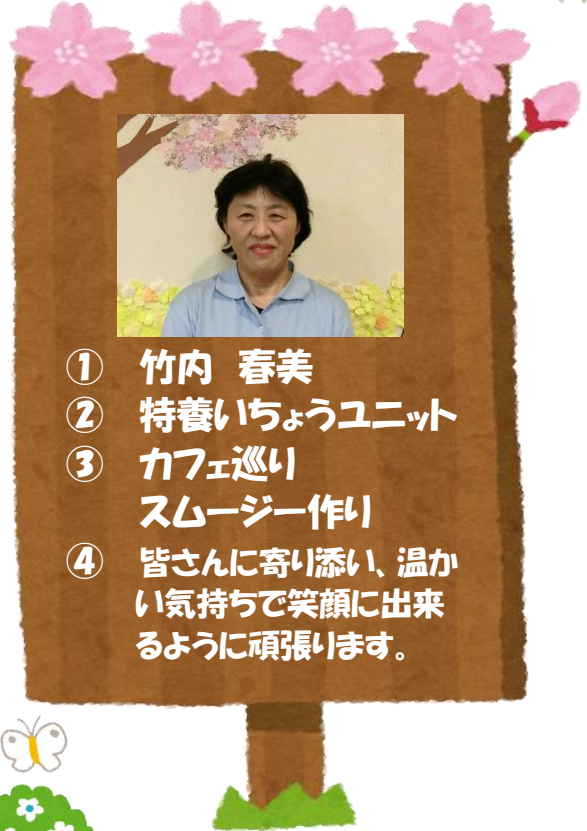 ① 竹内 春美
② 特養いちょうユニット
③ カフェ巡り
スムージー作り
④ 皆さんに寄り添い、温か
い気持ちで笑顔に出来
るように頑張ります。